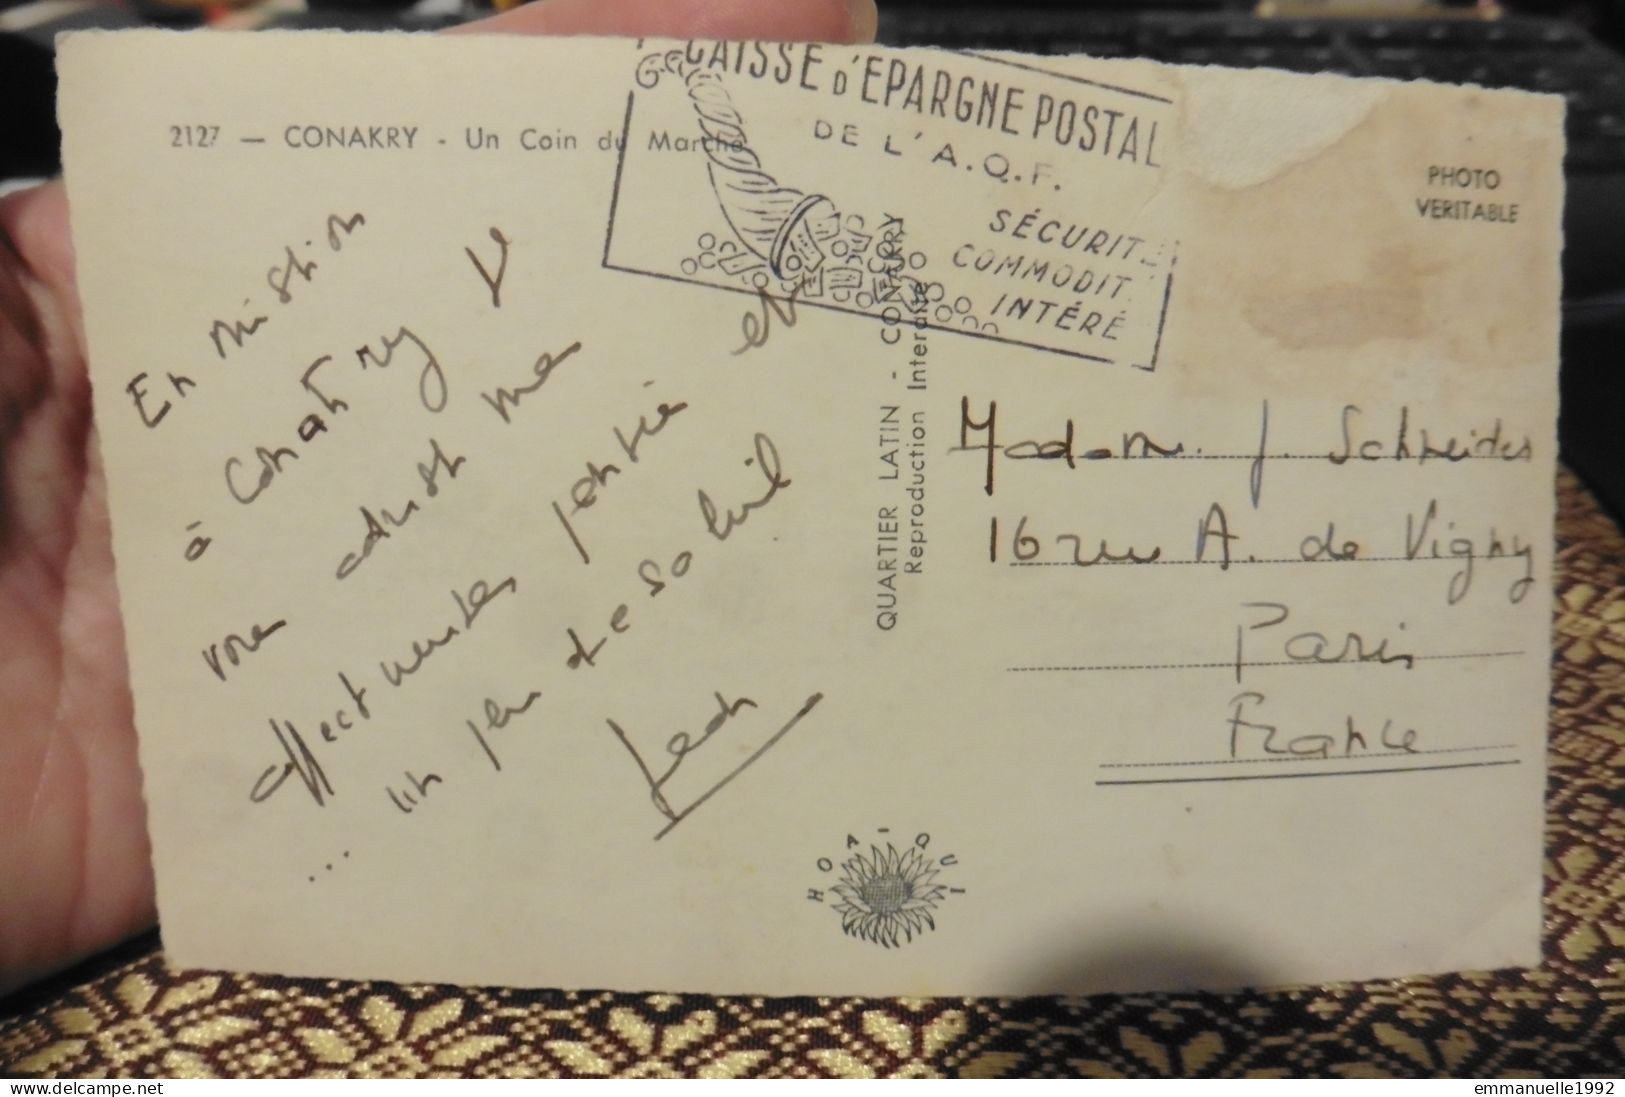 2127 — CONAKRY - Un Coin du Marché
CAISSE D'EPARGNE POSTAL
DE L'A.O.F.
SÉCURIT
COMMODIT
INTÉRÉ
PHOTO
VERITABLE
En mission
à Conakry je
vous adresse mes
affectueuses pensées et
... un peu de soleil
QUARTIER LATIN - CONAKRY
Reproduction Interdite
Madame J. Schneider
16 rue A. de Vigny
Paris
France
HOA-QUI
emmanuelle1992
delcampe.net